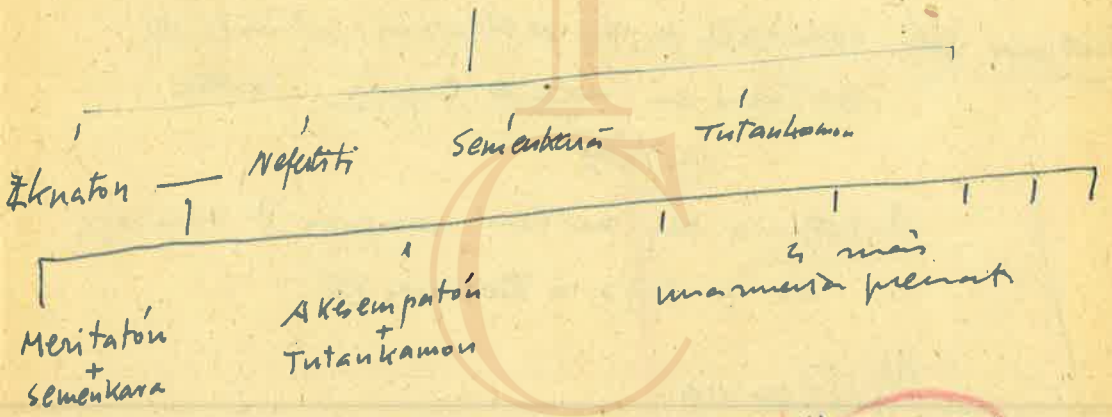 Eknaton — Nefertiti Semenkará Tutankamon
Meritatón
+
Semenkara
Akesempatón
+
Tutankamon
4 más
una muerta